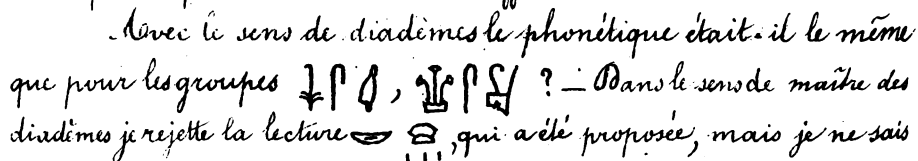 Avec le sens de diadèmes le phonétique était-il le même
que pour les groupes , ? — Dans le sens de maître des
diadêmes je rejette la lecture , qui a été proposée, mais je ne sais